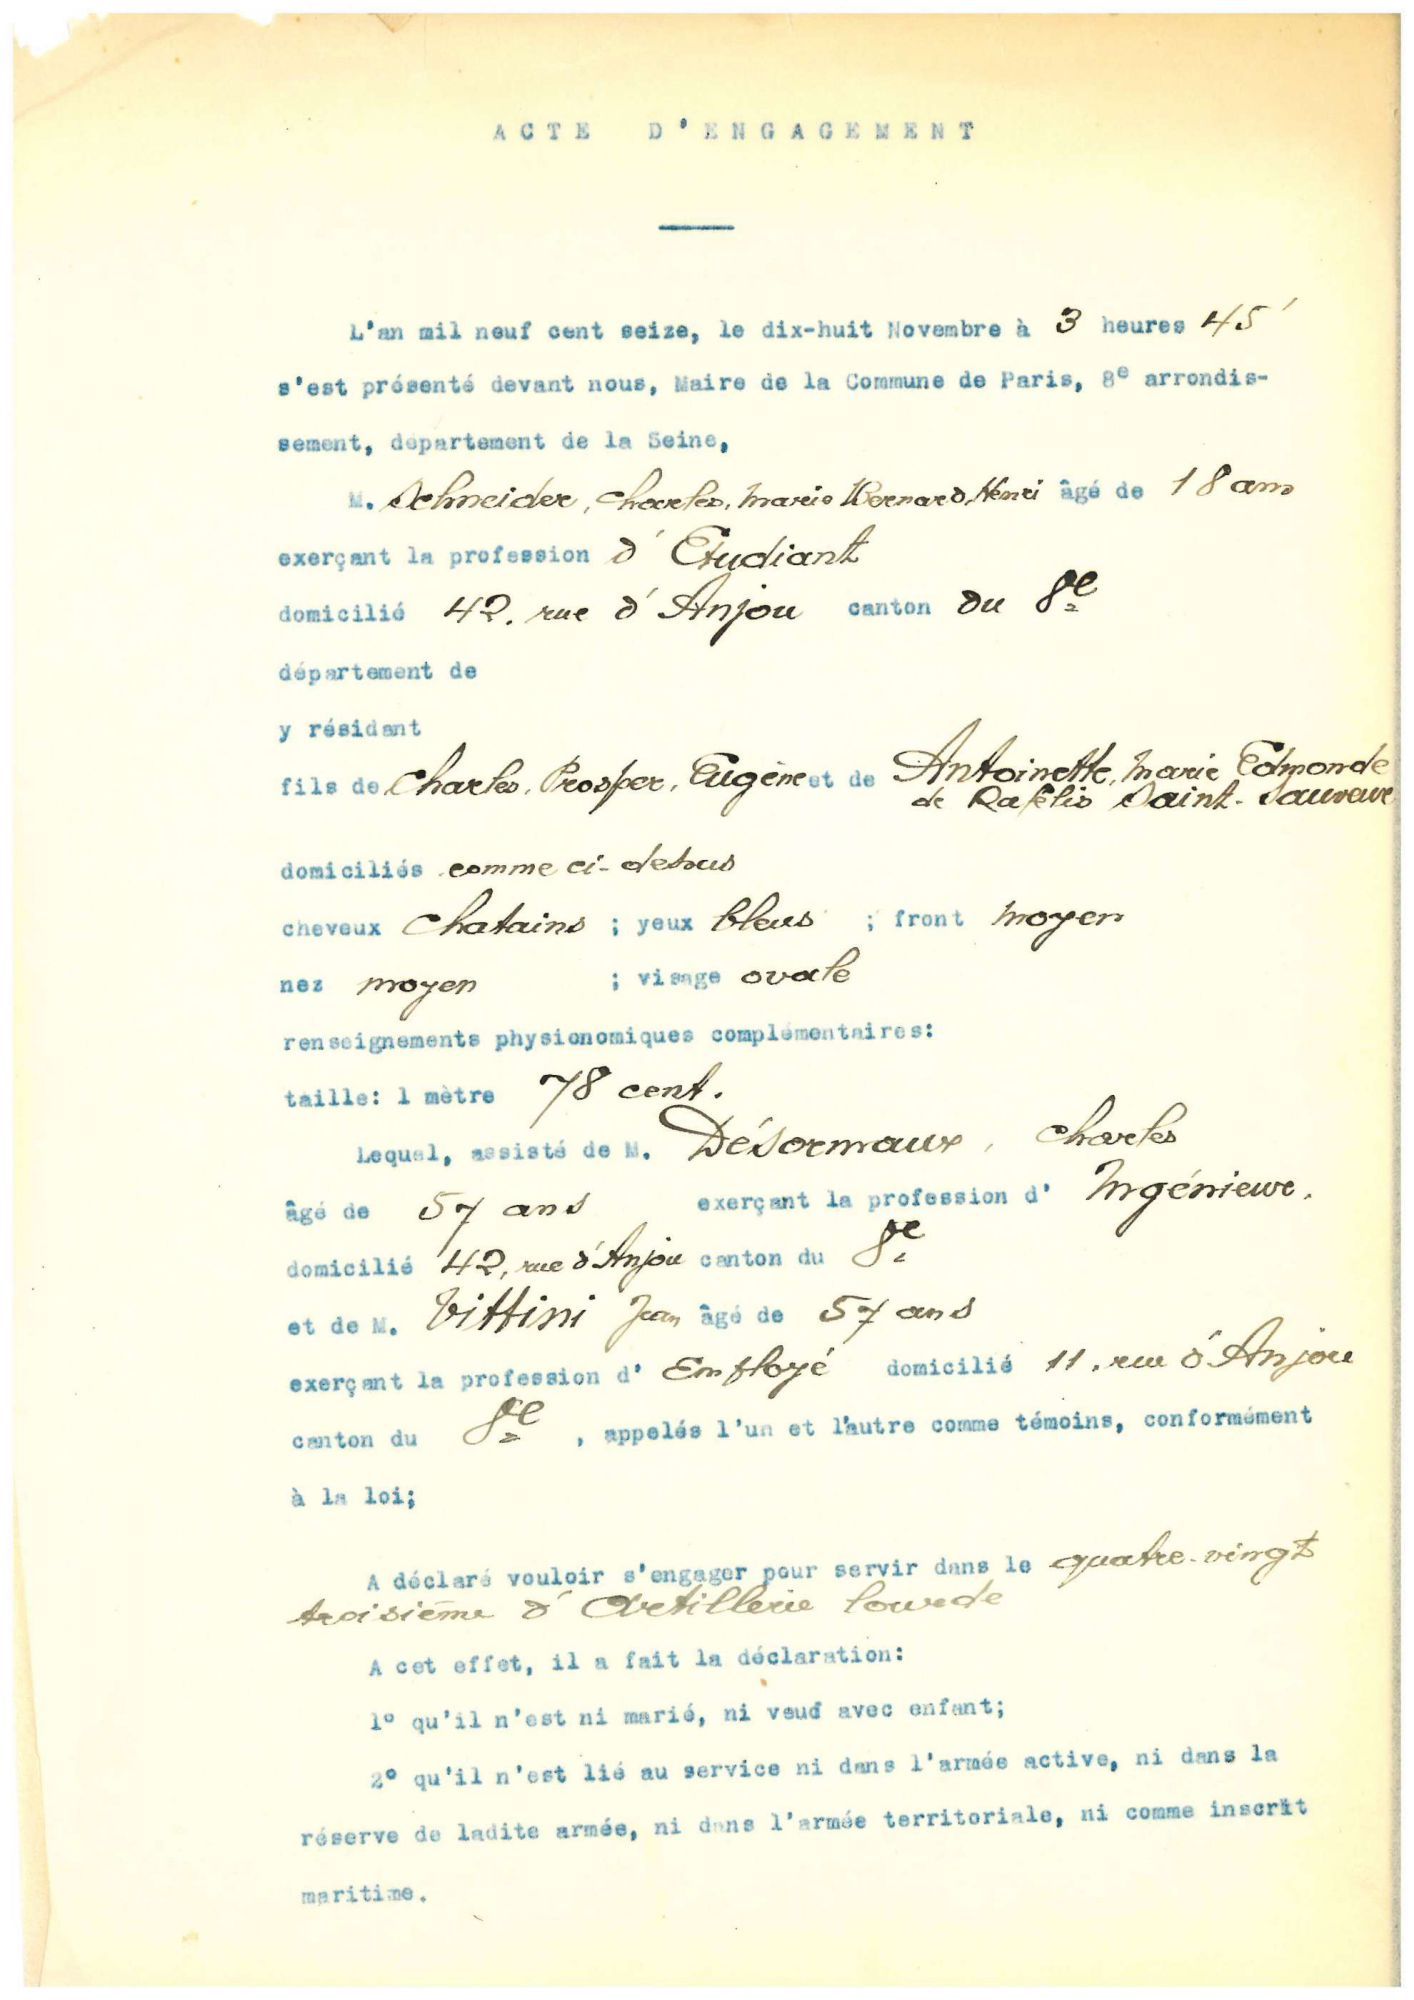 ACTE D'ENGAGEMENT
L'an mil neuf cent seize, le dix-huit Novembre à 3 heures 45'
s'est présenté devant nous, Maire de la Commune de Paris, 8e arrondis-
sement, département de la Seine,
M. Schneider, Charles, Marie Bernard, Henri âgé de 18 ans
exerçant la profession d'Etudiant
domicilié 42, rue d'Anjou canton du 8e
département de
y résidant
fils de Charles, Prosper, Eugène et de Antoinette, Marie Edmonde
de Rafélis Saint-Sauveur
domiciliés comme ci-dessus
cheveux chatains ; yeux bleus ; front moyen
nez moyen ; visage ovale
renseignements physionomiques complémentaires:
taille: 1 mètre 78 cent.
Lequel, assisté de M. Désormaux, Charles
âgé de 57 ans exerçant la profession d' Ingénieur.
domicilié 42, rue d'Anjou canton du 8e
et de M. Vittini Jean âgé de 57 ans
exerçant la profession d' Employé domicilié 11, rue d'Anjou
canton du 8e , appelés l'un et l'autre comme témoins, conformément
à la loi;
A déclaré vouloir s'engager pour servir dans le quatre-vingt
troisième d'Artillerie lourde
A cet effet, il a fait la déclaration:
1° qu'il n'est ni marié, ni veuf avec enfant;
2° qu'il n'est lié au service ni dans l'armée active, ni dans la
réserve de ladite armée, ni dans l'armée territoriale, ni comme inscrit
maritime.